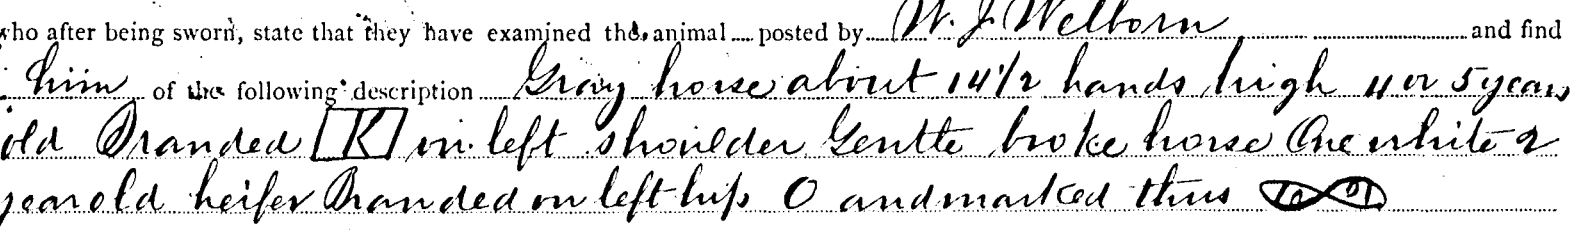 who after being sworn, state that they have examined the animal posted by W. J Welborn and find
him of the following description Gray horse about 14 1/2 hands high 4 or 5 years
old Branded [K] on left shoulder Gentle broke horse One white 2
year old heifer Branded on left hip O and marked thus